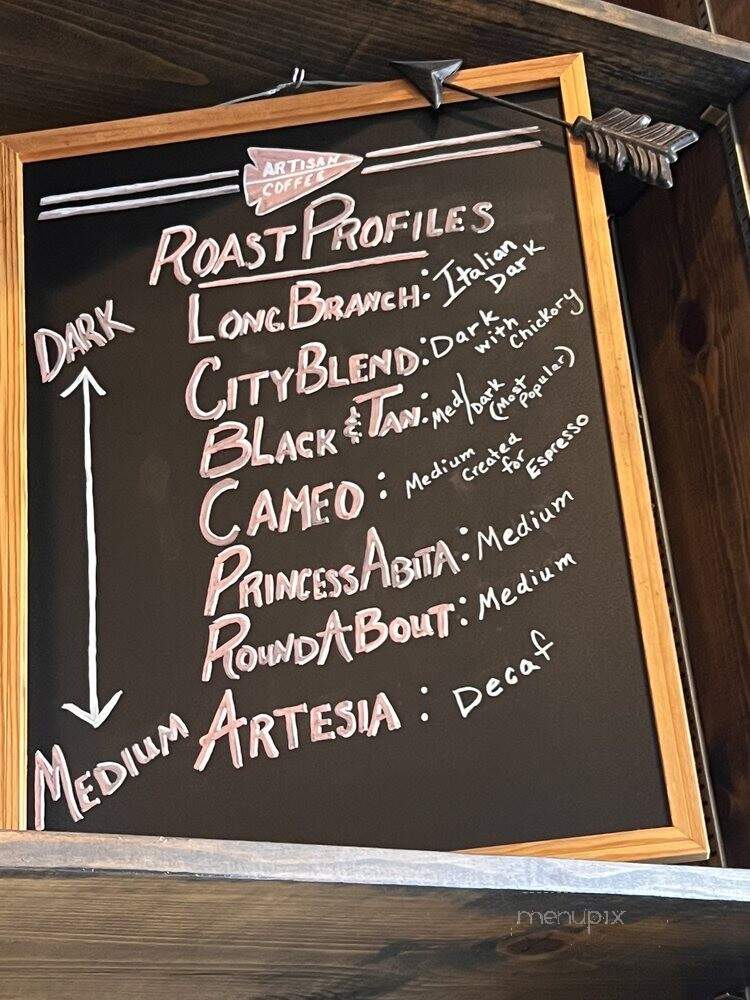 ARTISAN
COFFEE
ROAST PROFILES
DARK
LONG BRANCH: Italian Dark
CITY BLEND: Dark with Chickory
BLACK & TAN: Med/Dark (Most Popular)
CAMEO: Medium Created for Espresso
PRINCESS ABITA: Medium
ROUND A BOUT: Medium
ARTESIA: Decaf
MEDIUM
menupix